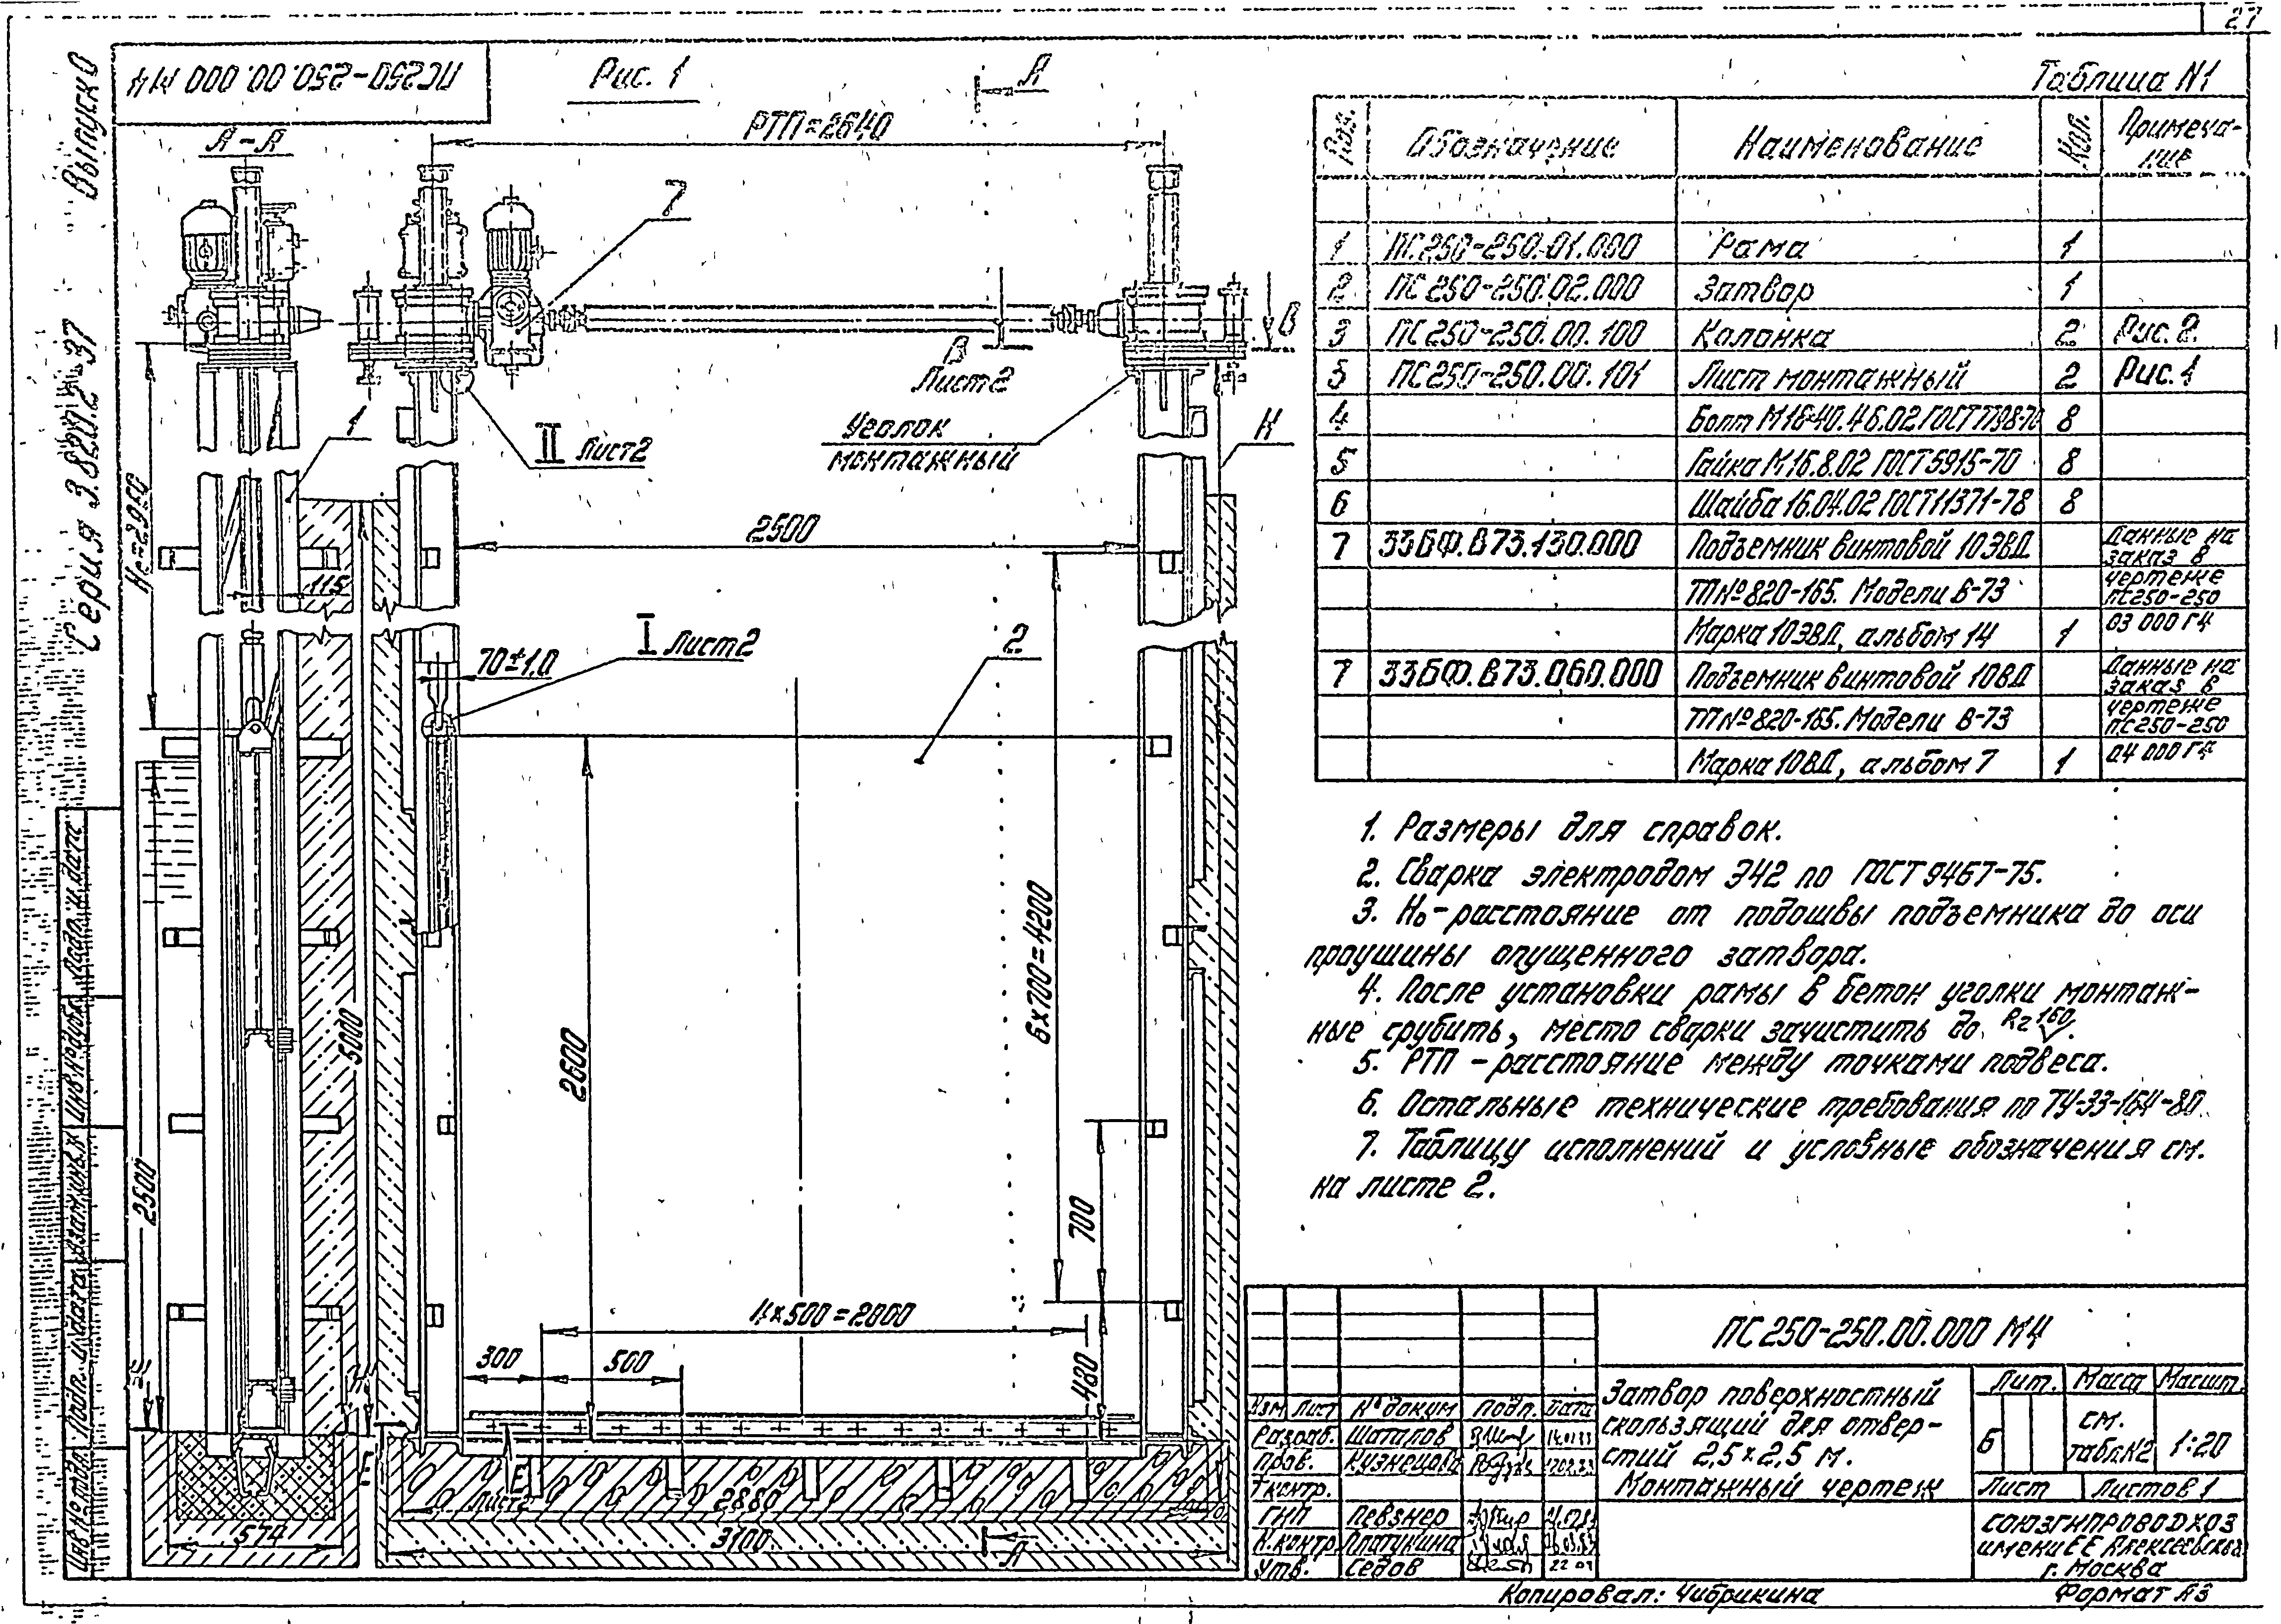 27
Серия 3.820.2-37 Выпуск 0
ПС250-250.00.000 МЧ
Рис. 1
А
А-А
РТП=2640
7
В
В
Лист 2
II Лист 2
Уголок
монтажный
К
1
Но=2950
115
2500
I Лист 2
2
70±1,0
5000
2600
6×700=4200
700
480
4×500=2000
300
500
Е
Е
Лист 2
2880
3100
574
А
Таблица N1
Поз. Обозначение Наименование Кол. Примеча-
ние
1 ПС250-250.01.000 Рама 1
2 ПС250-250.02.000 Затвор 1
3 ПС250-250.00.100 Колонка 2 Рис. 2
5 ПС250-250.00.101 Лист монтажный 2 Рис. 1
4 Болт М16×40.46.02 ГОСТ 7798-70 8
5 Гайка М16.8.02 ГОСТ 5915-70 8
6 Шайба 16.04.02 ГОСТ 11371-78 8
7 33БФ.В73.130.000 Подъемник винтовой 10ЭВД Данные на
заказ в
ТП№820-165. Модели В-73 чертеже
ПС250-250
Марка 10ЭВД, альбом 14 1 03 000 ГЧ
7 33БФ.В73.060.000 Подъемник винтовой 10ВД Данные на
заказ в
ТП№820-165. Модели В-73 чертеже
ПС250-250
Марка 10ВД, альбом 7 1 04 000 ГЧ
1. Размеры для справок.
2. Сварка электродом Э42 по ГОСТ 9467-75.
3. Но-расстояние от подошвы подъемника до оси
проушины опущенного затвора.
4. После установки рамы в бетон уголки монтаж-
ные срубить, место сварки зачистить до Rz 160.
5. РТП - расстояние между точками подвеса.
6. Остальные технические требования по ТУ-33-164-80.
7. Таблицу исполнений и условные обозначения см.
на листе 2.
ПС250-250.00.000 МЧ
Изм Лист № докум Подп. Дата
Разраб. Шатаров
Пров. Кузнецова
Т.контр.
ГИП Певзнер
Н.контр. Платунина
Утв. Седов
Затвор поверхностный
скользящий для отвер-
стий 2,5×2,5 м.
Монтажный чертеж
Лит. Масса Масшт.
Б см. табл.N2 1:20
Лист Листов 1
СОЮЗГИПРОВОДХОЗ
имени Е Е Алексеевского
г. Москва
Инв № подл. Подп. и дата Взам инв.№ Инв № дубл. Подп. и дата
Копировал: Чибрикина Формат А3